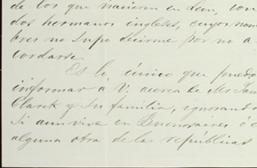 de los que nacieron en Leon, con
dos hermanos ingleses, cuyos nom
bres no supo decirme por no a
cordarse.
Es lo único que puedo
informar a V. acerca de Mr. 
Clark y su familia, ignorando
si aun vive en Buenos aires ó en
alguna otra de las repúblicas